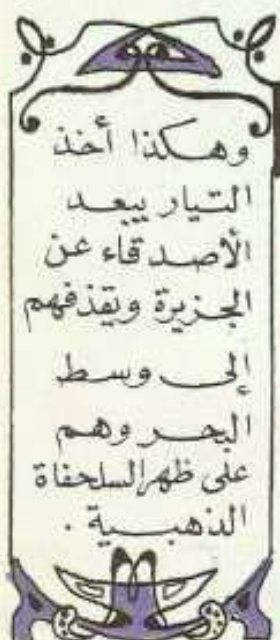 وهكذا أخذ
التيار يبعد
الأصدقاء عن
الجزيرة ويقذفهم
إلى وسط
البحر وهم
على ظهر السلحفاة
الذهبية .